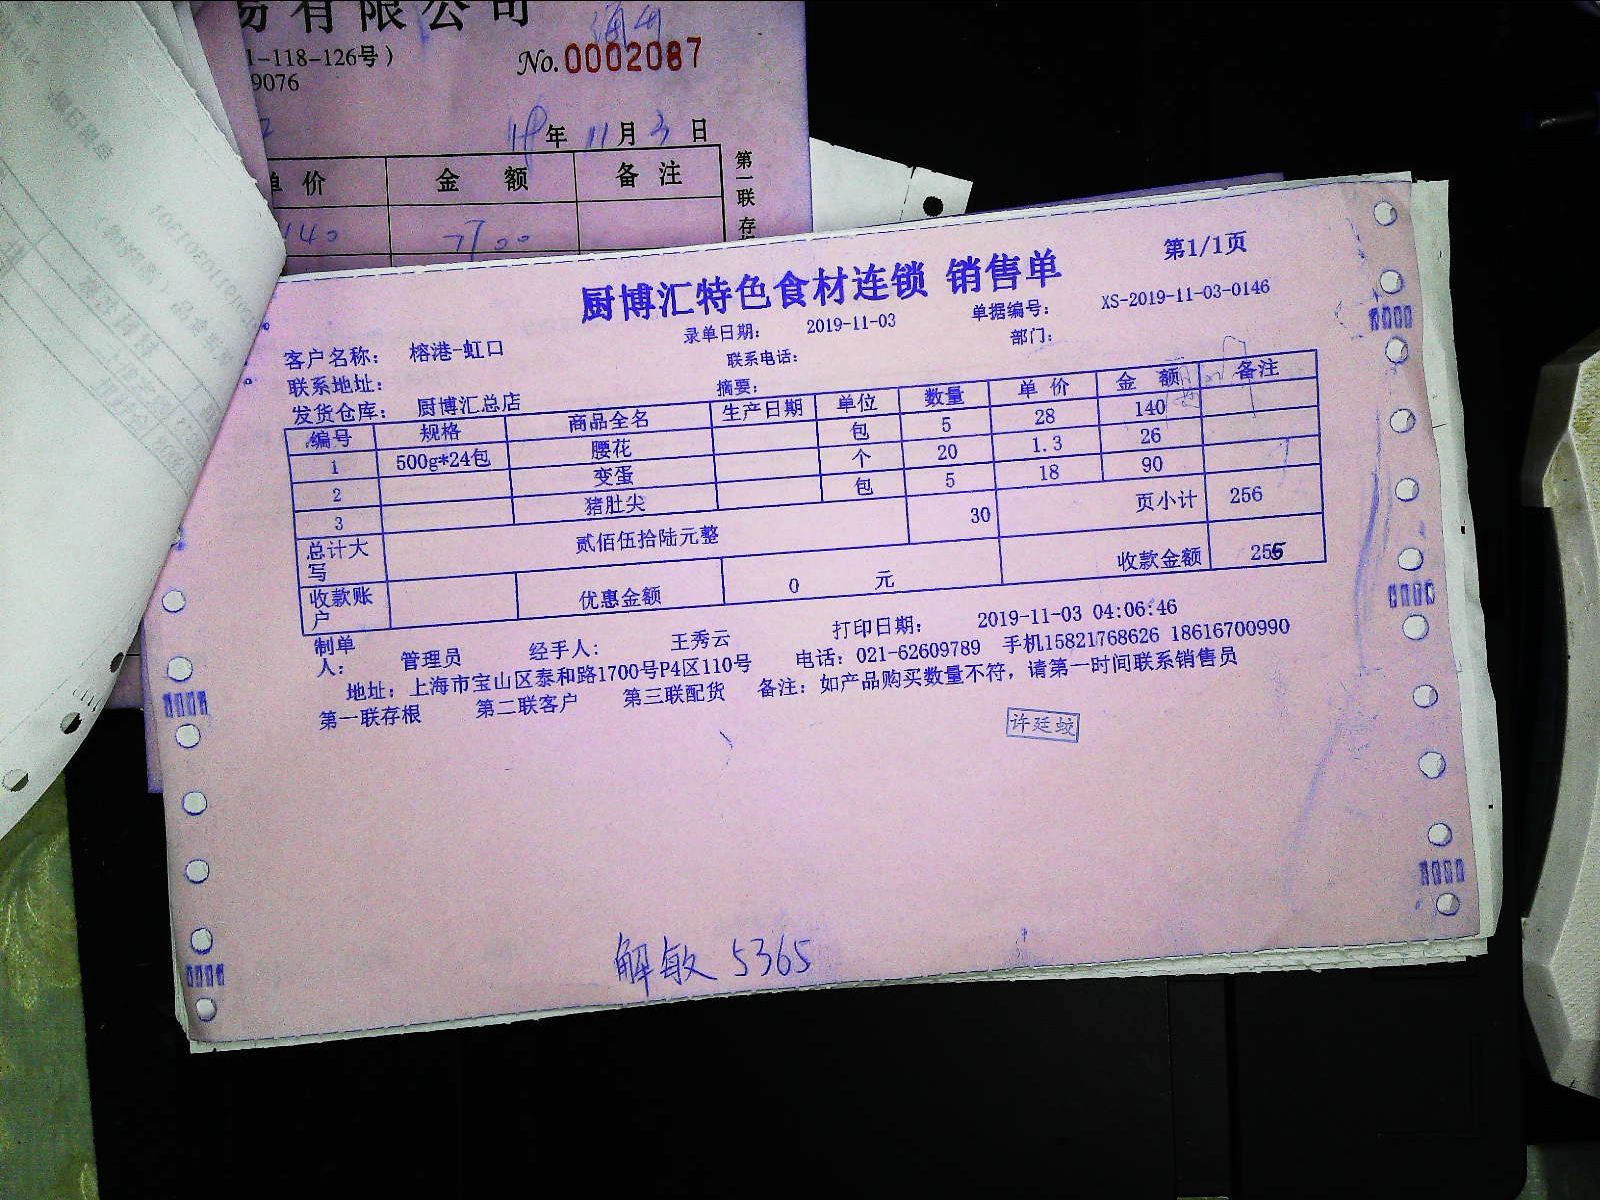 易有限公司
1-118-126号）
No.0002087
9076
19年 11月 3日
单价 金额 备注
140 7700
第一联存
厨博汇特色食材连锁 销售单
第1/1页
录单日期： 2019-11-03 单据编号： XS-2019-11-03-0146
客户名称： 榕港-虹口 联系电话： 部门：
联系地址： 摘要：
发货仓库： 厨博汇总店
编号 规格 商品全名 生产日期 单位 数量 单价 金额 备注
1 500g*24包 腰花 包 5 28 140
2 变蛋 个 20 1.3 26
3 猪肚尖 包 5 18 90
总计大写 贰佰伍拾陆元整 30 页小计 256
收款账户 优惠金额 0 元 收款金额 256
制单人： 管理员 经手人： 王秀云 打印日期： 2019-11-03 04:06:46
地址：上海市宝山区泰和路1700号P4区110号 电话：021-62609789 手机15821768626 18616700990
第一联存根 第二联客户 第三联配货 备注：如产品购买数量不符，请第一时间联系销售员
许廷蛟
解敏 5365